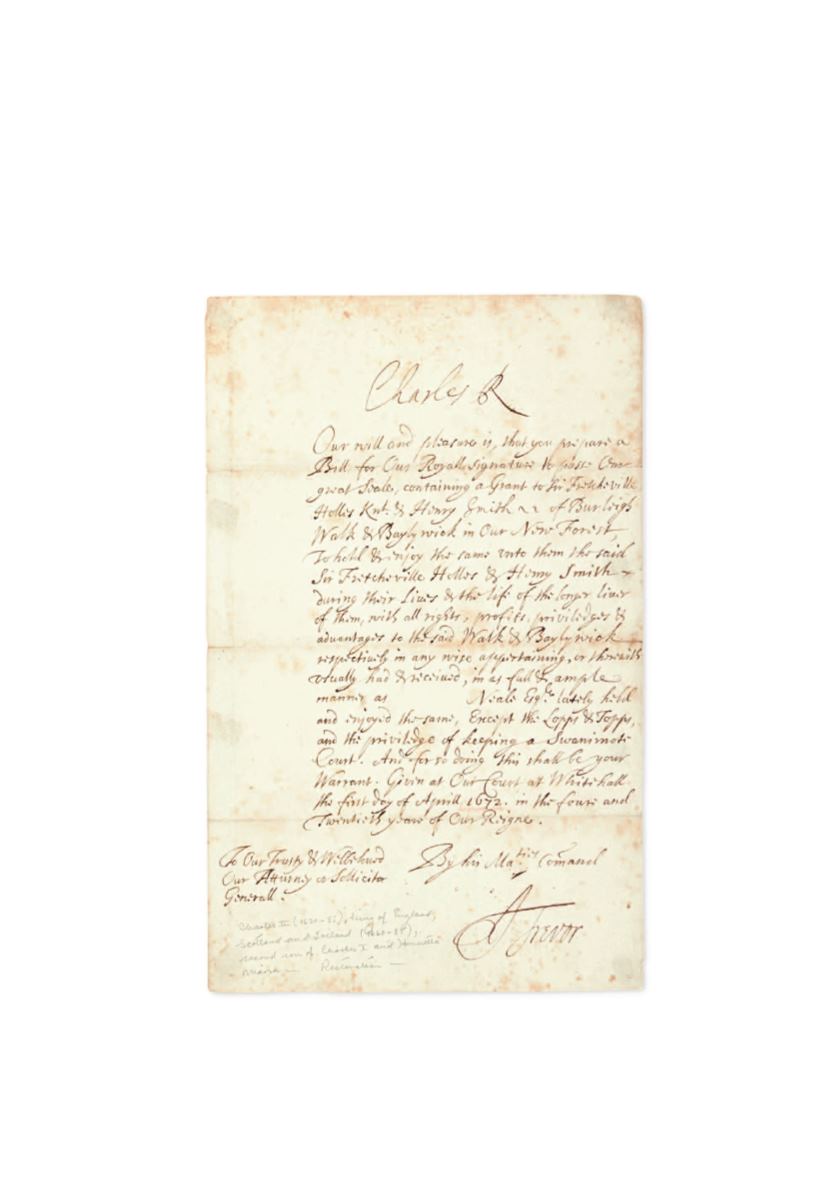 Charles R
Our will and pleasure is, that you prepare a
Bill for Our Royall signature to passe Our
great Seale, containing a Grant to Sir Fretcheville
Holles Knt. & Henry Smith of Burleigh
Walk & Baylywick in Our New Forest,
To hold & enjoy the same unto them the said
Sir Fretcheville Holles & Henry Smith
during their Lives & the life of the longer liver
of them, with all rights, profits, priviledges &
advantages to the said Walk & Baylywick
respectively in any wise appertaining, or therewith
usually had & received, in as full & ample
manner as Neale Esqr. lately held
and enjoyed the same, Except the Lopps & Topps,
and the priviledge of keeping a Swanimote
Court. And for so doing this shall be your
Warrant. Given at Our Court at Whitehall
the first day of Aprill 1672. in the foure and
Twentieth yeare of Our Reigne.
To Our Trusty & Wellbeloved
Our Atturney or Sollicitor
Generall.
By his Maties Comand
J Trevor
Charles II (1630-85), King of England,
Scotland and Ireland (1660-85),
second son of Charles I and Henrietta
Maria — Restoration —